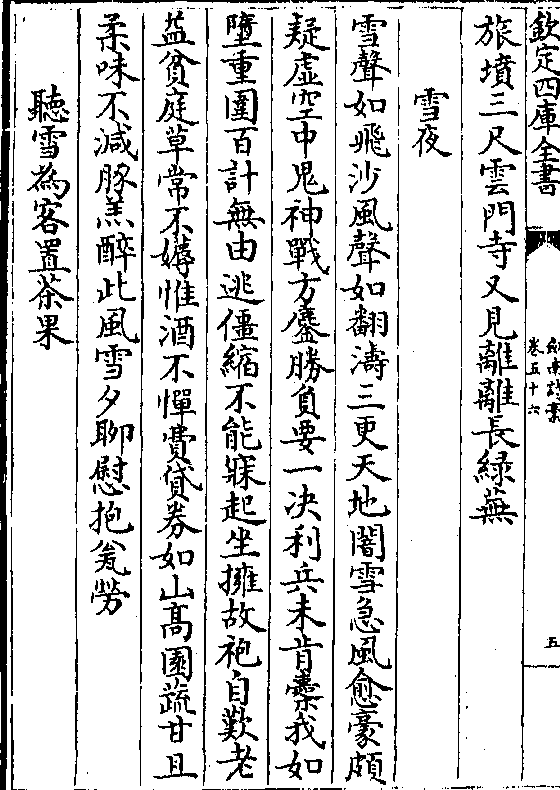 欽定四庫全書
卷五十六
五
旅墳三尺雲門寺又見離離長緑蕪
雪夜
雪聲如飛沙風聲如翻濤三更天地闇雪急風愈豪頗
疑虚空中鬼神戰方鏖勝負要一决利兵未肯櫜我如
墮重圍百計無由逃僵縮不能寐起坐擁故袍自歎老
益貧庭草常不薅惟酒不憚費貸券如山髙園蔬甘且
柔味不减豚羔醉此風雪夕聊慰抱瓮勞
聽雪為客置茶果